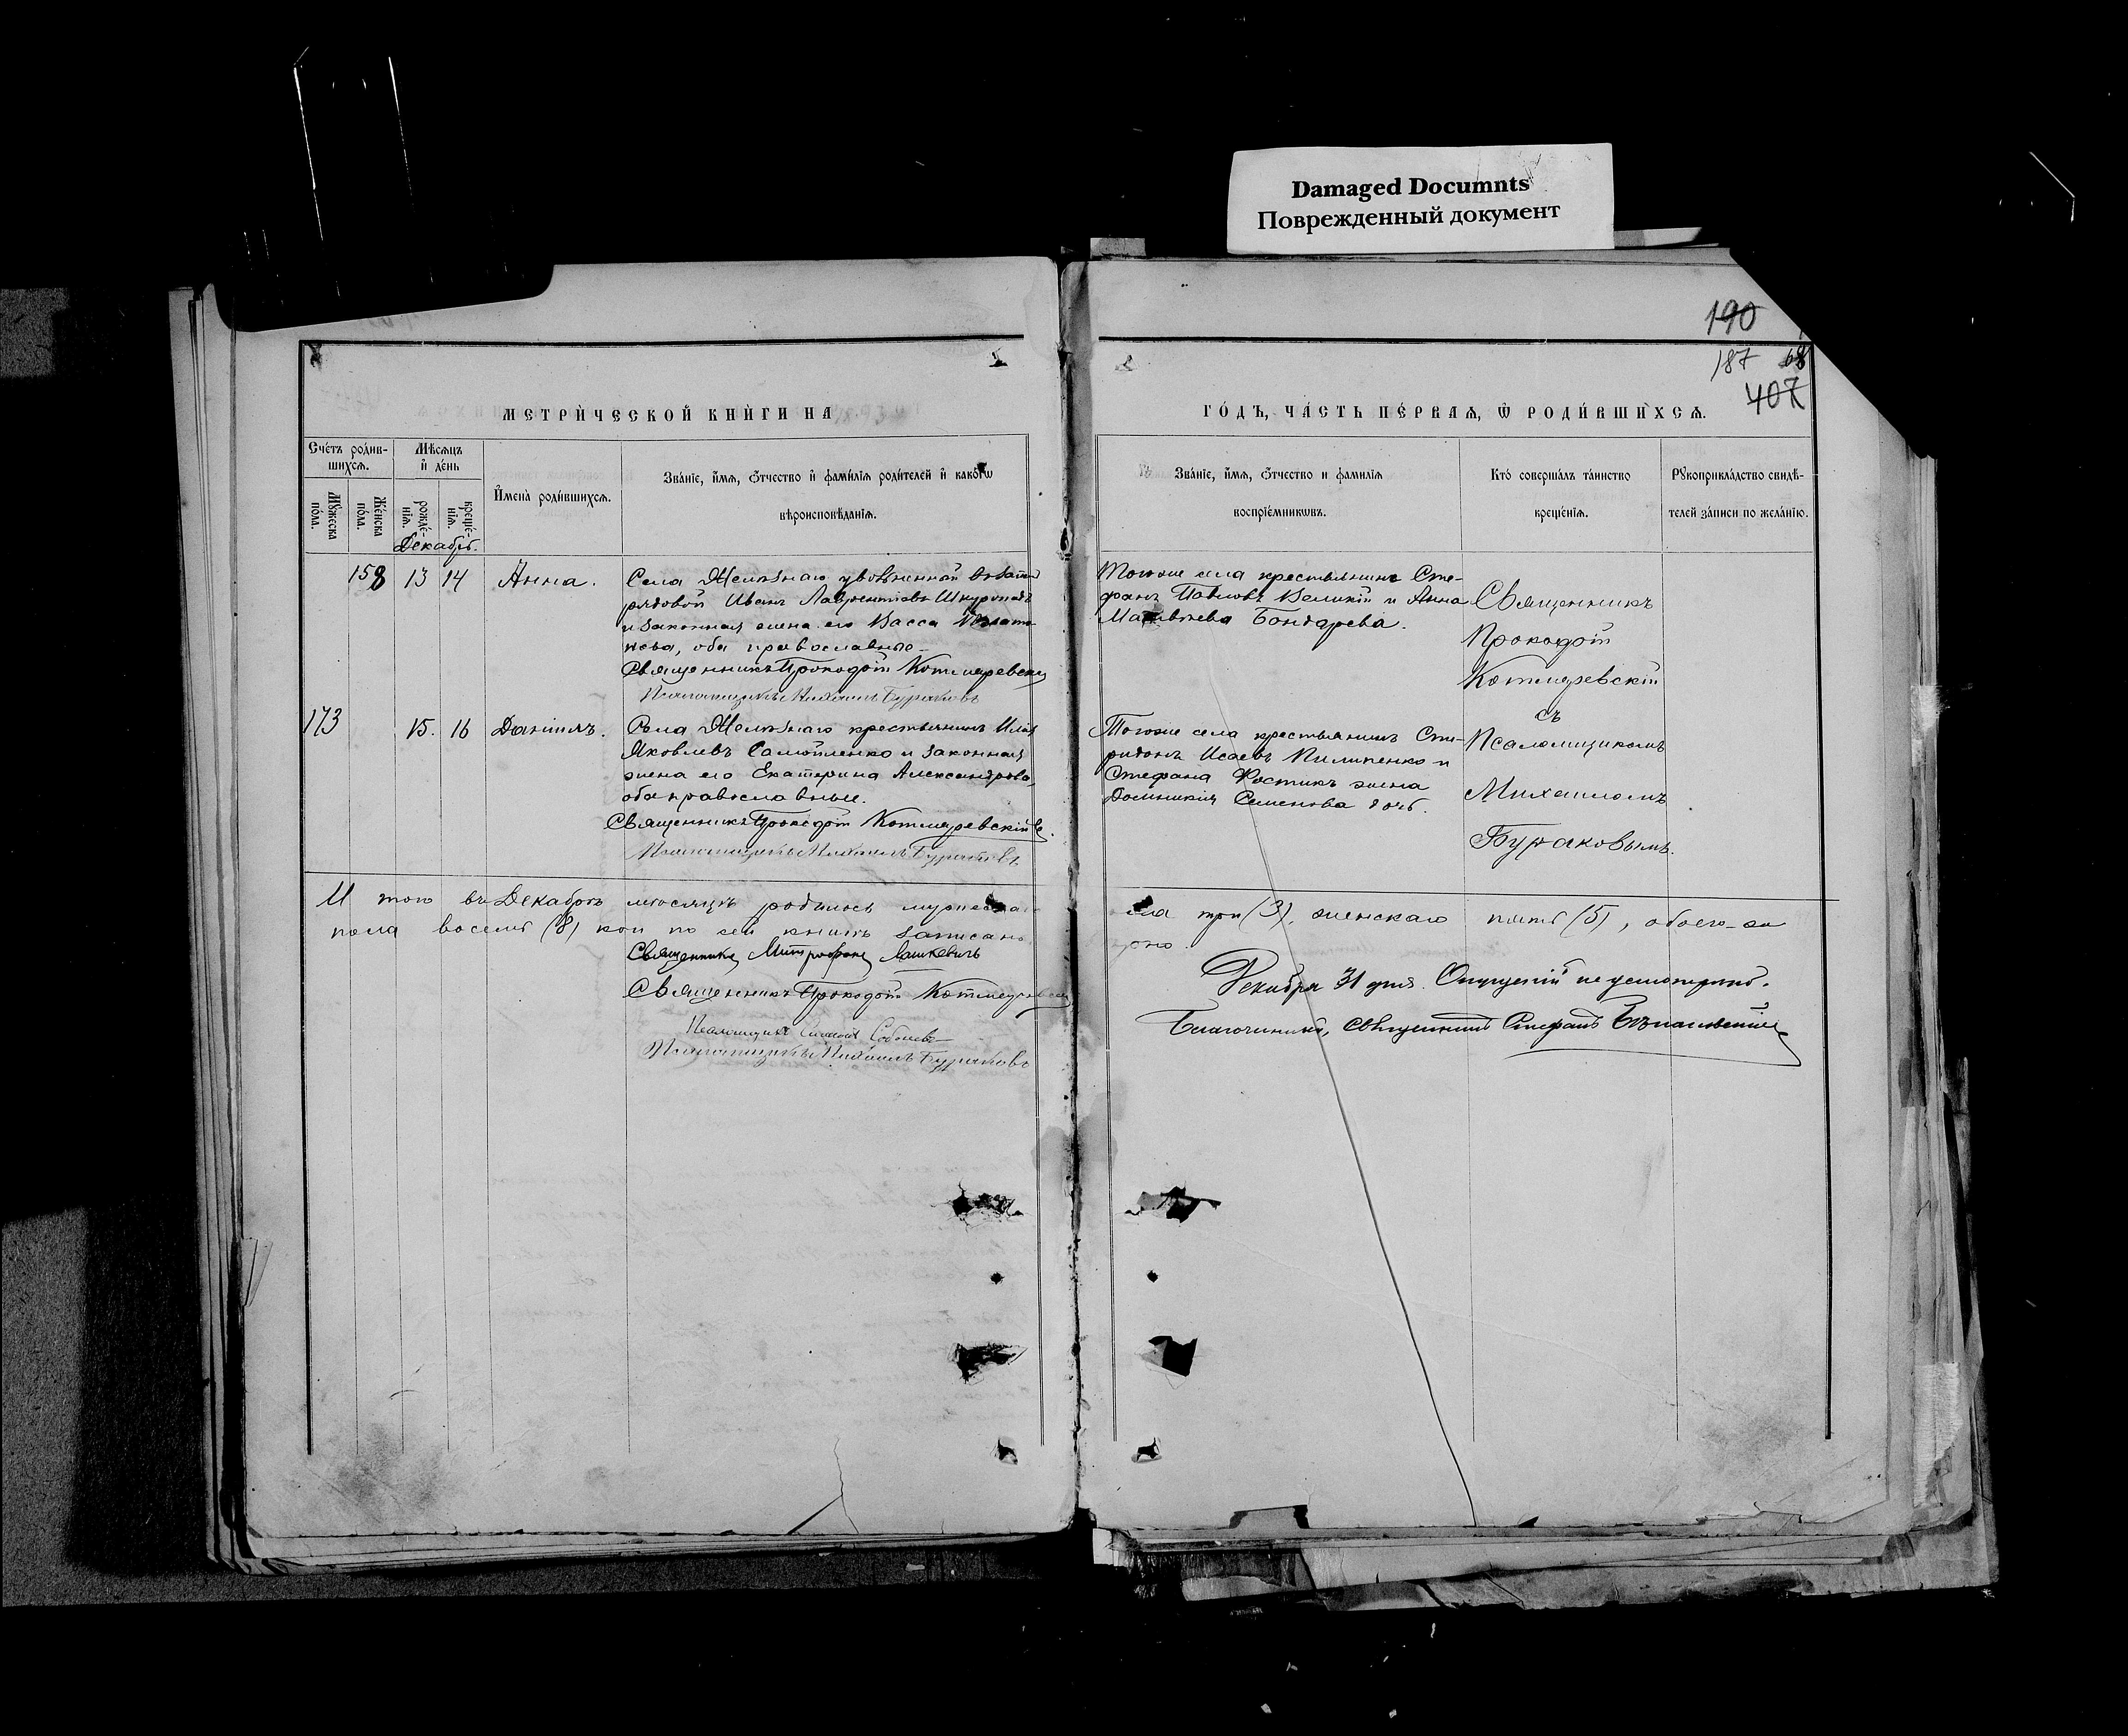 Damaged Documnts
Поврежденный документ
190
187 68
407
МЕТРИ́ЧЕСКОЙ КНИ́ГИ НА
ГО́ДЪ, ЧА́СТЬ ПЕ́РВАЯ, Ѽ РОДИ́ВШИХСЯ.
Сче́тъ роди́в-
шихся.
Мѣ́сяцъ
и҆ де́нь
Мꙋ́жеска
по́ла.
Же́нска
по́ла.
рожде́-
нїѧ.
креще́-
нїѧ.
И҆мена̀ роди́вшихся.
Зва́нїе, и҆́мѧ, ѻ҆́тчество и҆ фами́лїѧ роди́телей и҆ како́гѡ
вѣроисповѣ́данїѧ.
Зва́нїе, и҆́мѧ, ѻ҆́тчество и фами́лїѧ
воспрїе́мникѡвъ.
Кто̀ соверша́лъ та́инство
креще́нїѧ.
Рꙋкоприкла́дство свидѣ́-
телей за́писи по жела́нїю.
Декабрь.
158 13 14 Анна.
Села Желѣзнаго уволенный въ запасъ
рядовой Иванъ Лаврентіевъ
и законная жена его Васса
оба православные
Священникъ Прокофій Котляревскій
Псаломщикъ Михаилъ Бураковъ
Тогоже села крестьянинъ Сте-
фанъ Павловъ Великій и Анна
Матвѣева Бондарева.
Священникъ
Прокофій
Котляревскій
съ
Псаломщикомъ
Михаиломъ
Бураковымъ.
173 15. 16 Даніилъ.
Села Желѣзнаго крестьянинъ Илія
Яковлевъ Самойленко и законная
жена его Екатерина Александрова,
оба православные.
Священникъ Прокофій Котляревскій
Псаломщикъ Михаилъ Бураковъ
Тогоже села крестьянинъ Спи-
ридонъ Исаевъ Пилипенко и
Стефана Костикъ жена
Домникія Семенова дочь.
Итого въ Декабрѣ мѣсяцѣ родилось мужеска
пола три (3), женскаго пять (5), обоего
пола восемь (8) кои по сей книгѣ записаны
Священникъ Митрофанъ Лашкевичъ
Священникъ Прокофій Котляревскій
Псаломщикъ Соболевъ
Псаломщикъ Михаилъ Бураковъ
Декабря 31 дня. Опущеній не усмотрено.
Благочинный, священникъ Стефанъ